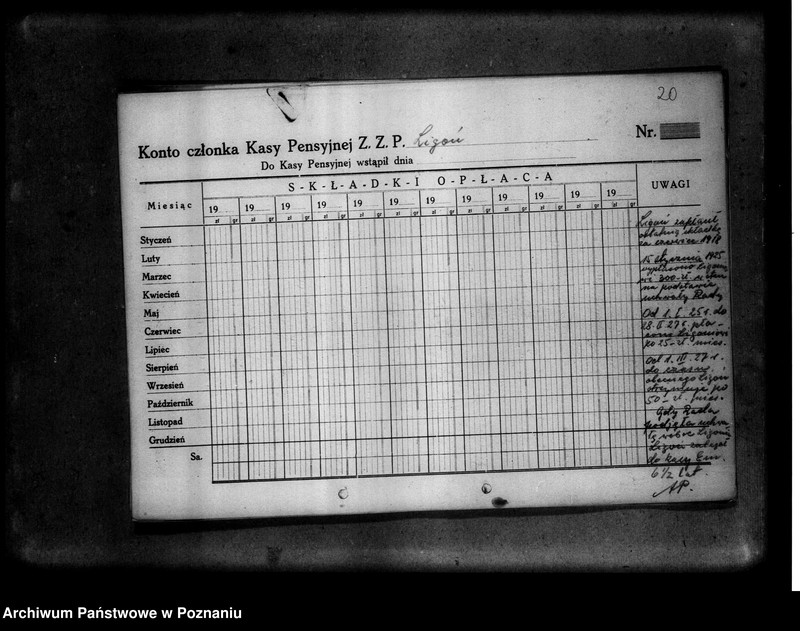 20
Konto członka Kasy Pensyjnej Z. Z. P. Ligoń
Nr.
Do Kasy Pensyjnej wstąpił dnia
Miesiąc
S-K-Ł-A-D-K-I O-P-Ł-A-C-A
UWAGI
19 19 19 19 19 19 19 19 19 19 19 19
zł gr zł gr zł gr zł gr zł gr zł gr zł gr zł gr zł gr zł gr zł gr zł gr
Styczeń
Luty
Marzec
Kwiecień
Maj
Czerwiec
Lipiec
Sierpień
Wrzesień
Październik
Listopad
Grudzień
Sa.
Ligoń zapłacił
ostatnią składkę
za czerwiec 1918
15 stycznia 1925
wypłacono Ligonio
wi 300 zł
na podstawie
uchwały Rady
Od 1. I. 25 r. do
28. II 27 r. pła-
cono Ligoniowi
po 25 zł. mies.
Od 1. III. 27 r.
do czasu
obecnego Ligoń
otrzymuje po
50 zł. mies.
Gdy Rada
podjęła uchwa
łę
Ligoń należał
do kasy Em.
6 1/2 lat.
AP.
Archiwum Państwowe w Poznaniu